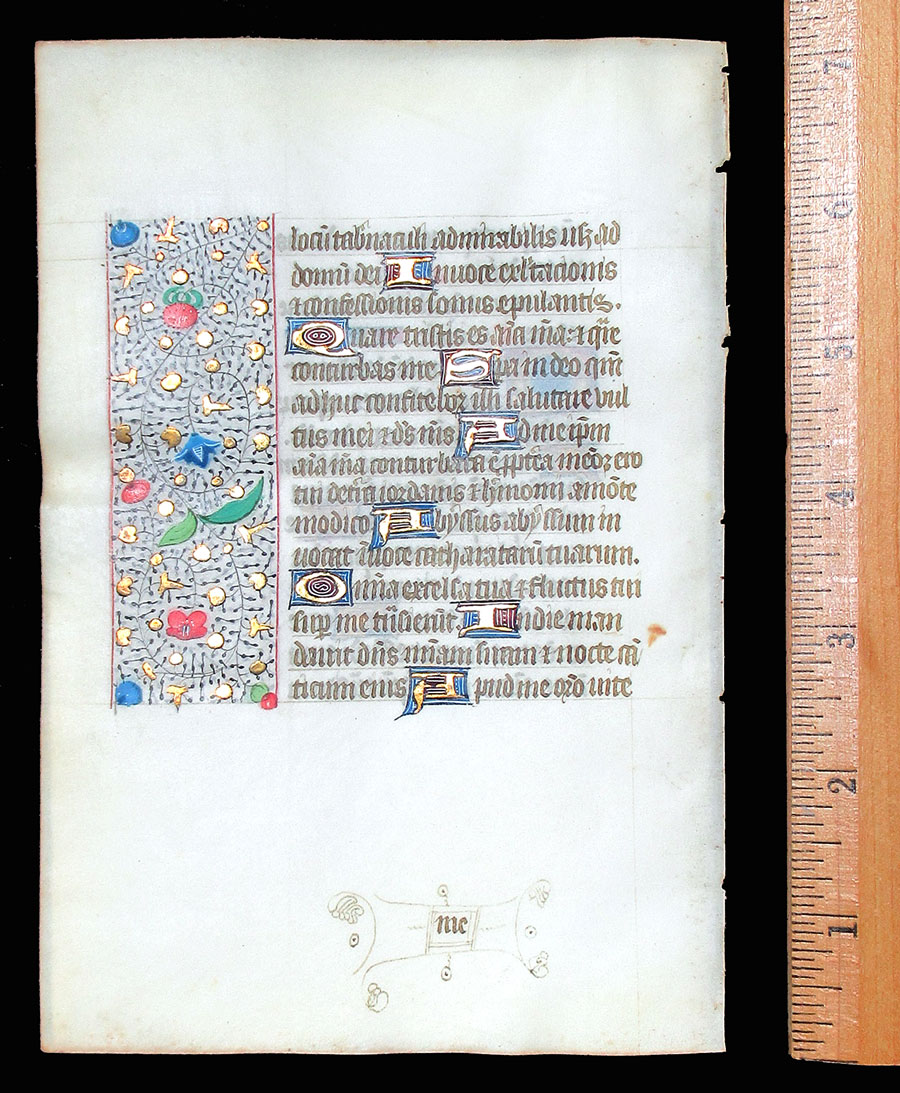 locū tab̄naculi admirabilis usq̄ ad
domū dei In uoce exl̄tacionis
⁊ confessionis sonus epulantis.
Quare tristis es aīa mā: ⁊ q̄re
conturbas me Spa in deo qm̄
adhuc confitebor illi salutare uul
tus mei ⁊ dṡ mṡ Ad me ip̄m
aīa mā conturbata ē p̄ptēa meōꝝ ero
tui de tr̄a iordanis ⁊ h̓monii a mōte
modico Abẏssus abẏssum in
uocat ī uoce catharatarū tuarum.
Omīa excelsa tua ⁊ fluctus tui
sup̱ me trāsierūt. In die man
dauit dn̄s mīam suam ⁊ nocte cā
ticum eius Apud me or̄o uite
me
7
6
5
4
3
2
1